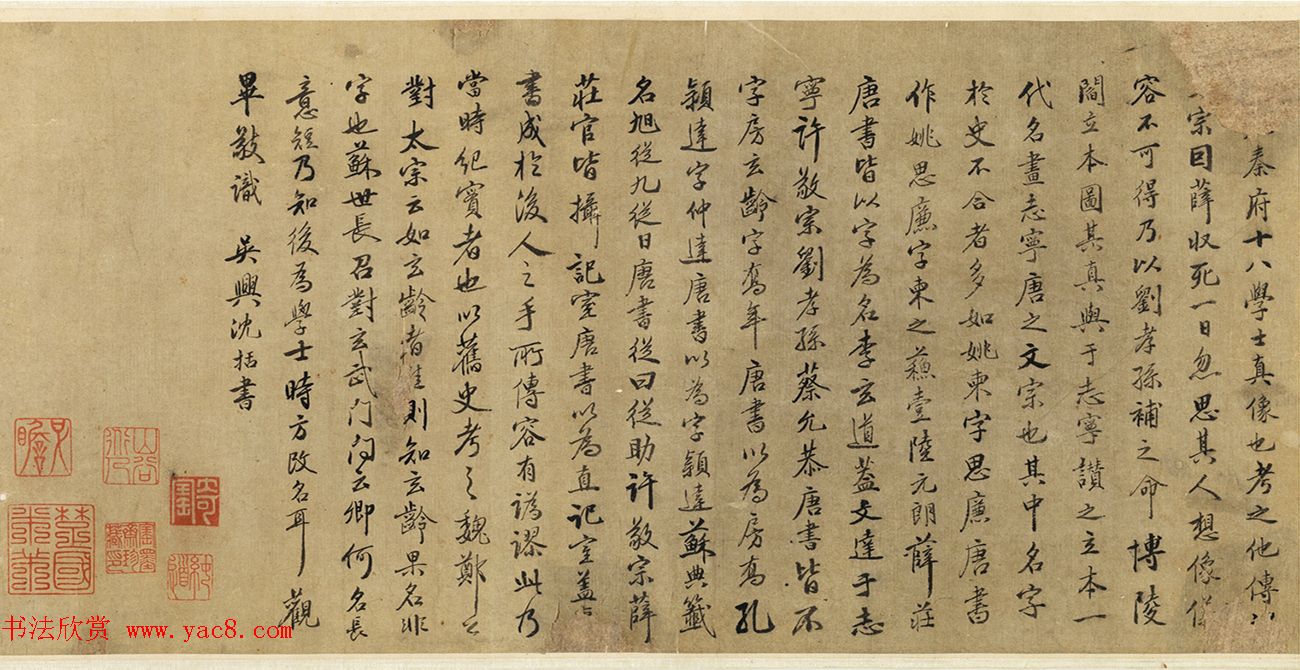 秦府十八學士真像也考之他傳
宗曰薛收死一日忽思其人想像儀
容不可得乃以劉孝孫補之命博陵
閻立本圖其真與于志寧讃之立本一
代名畫志寧唐之文宗也其中名字
於史不合者多如姚柬字思廉唐書
作姚思廉字柬之蘇壹陸元朗薛莊
唐書皆以字為名李玄道蓋文達于志
寧許敬宗劉孝孫蔡允恭唐書皆不
字房玄齡字喬年唐書以為房喬孔
穎達字仲達唐書以為字穎達蘇典籤
名旭從九從日唐書從曰從助許敬宗薛
莊官皆攝記室唐書以為直記室蓋
書成於後人之手所傳容有譌謬此乃
當時紀實者也以舊史考之魏鄭公
對太宗云如玄齡者佳則知玄齡果名非
字也蘇世長召對玄武門問云卿何名長
意短乃知後為學士時方改名耳 觀
畢敬識 吳興沈括書
山谷
书法欣赏 www.yac8.com